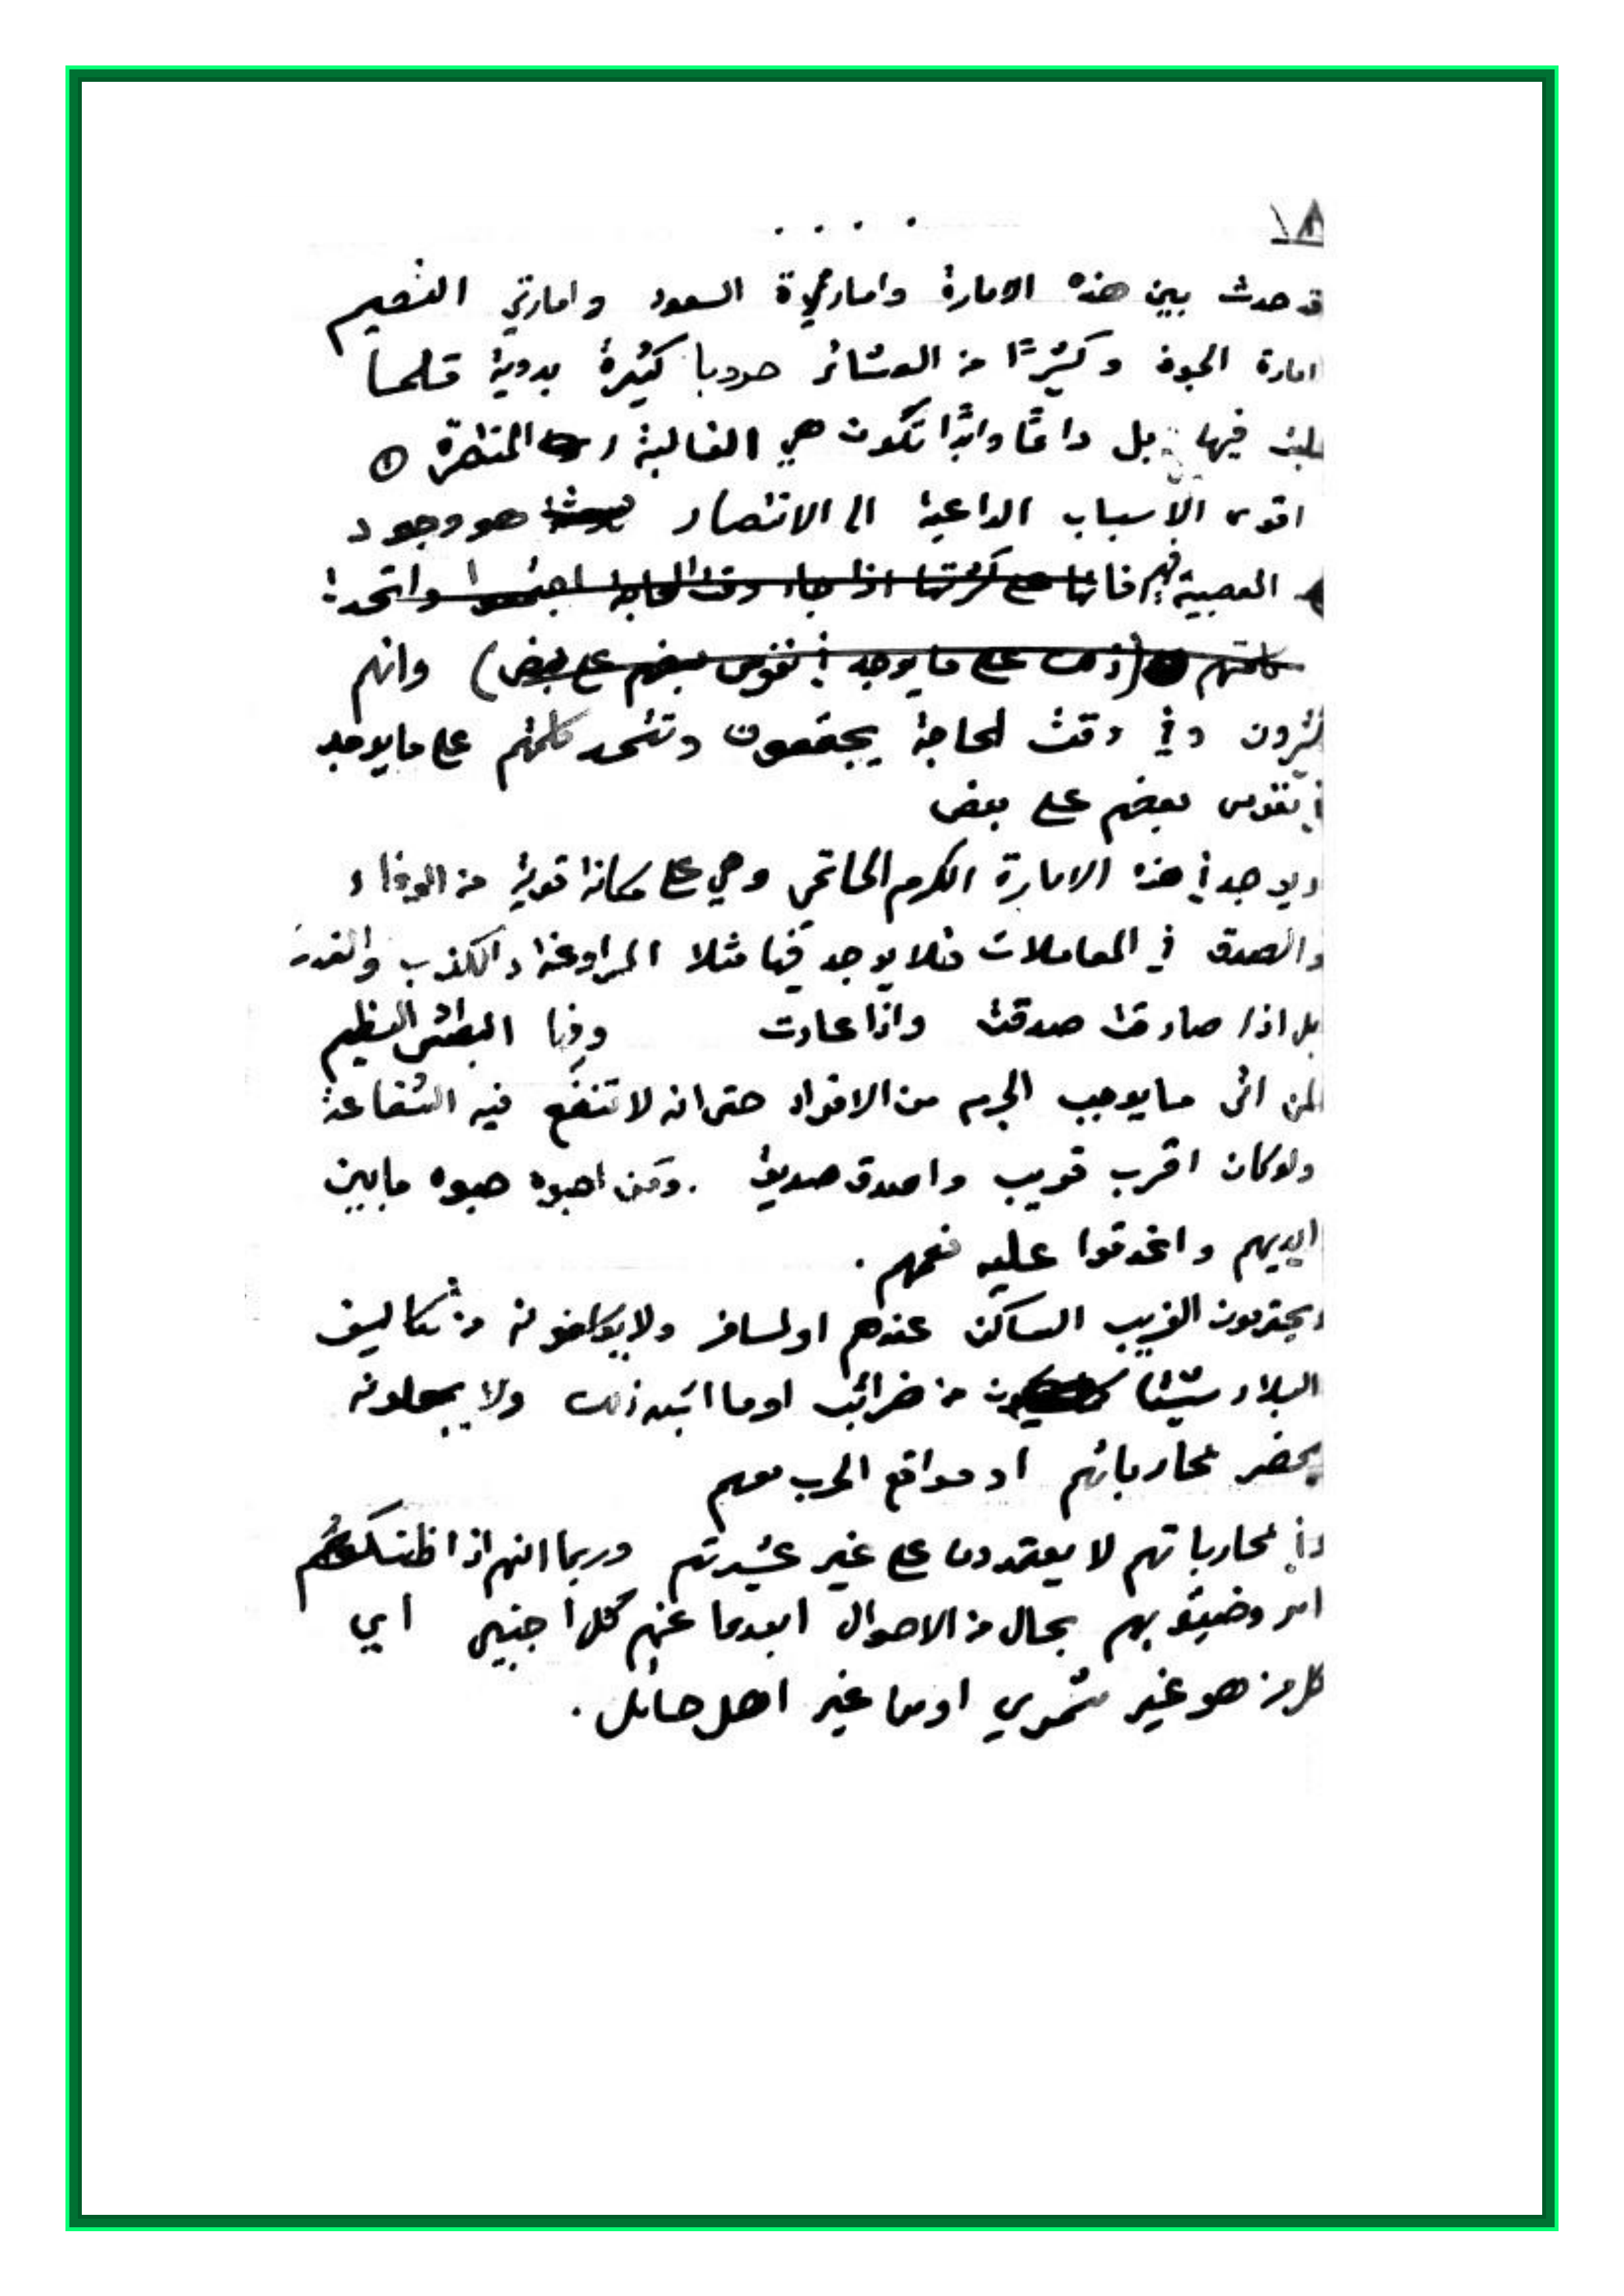 ١٨
....
قد حدث بين هذه الامارة وامارة السعود وامارتي القصيم
امارة الجوف وكثيرًا من العشائر حروبا كثيرة بدوية قلما
غلبت فيها بل دائمًا وابدًا تكون هي الغالبة المنتصرة ①
اقوى الاسباب الداعية الى الانتصار هو وجود
العصبية فيهم فانها على كثرتها اذا جاء وقت الحاجة اجتمعوا واتحدت
كلمتهم (ذلك على ما يوجد في نفوس بعضهم على بعض) وانهم
كثيرون وفي وقت الحاجة يجتمعون وتتحد كلمتهم على ما يوجد
في نفوس بعضهم على بعض
ويوجد في هذه الامارة الكرم الحاتمي وهي على مكانة قوية من الوفاء
والصدق في المعاملات فلا يوجد فيها مثلا المراوغة والكذب والغدر
بل اذا صادقت صدقت واذا عادت وفيها البطش العظيم
لمن اتى ما يوجب الجرم من الافراد حتى انه لا تنفع فيه الشفاعة
ولو كان اقرب قريب واصدق صديق . ومن احبوه حبوه ما بين
ايديهم واغدقوا عليه نعمهم .
ويحترمون الغريب الساكن عندهم او المسافر ولا من تكاليف
البلاد شيئا من ضرائب او ما اشبه ذلك ولا يجعلونه
يحضر محارباتهم او مواقع الحرب معهم
وفي محارباتهم لا يعتمدون على غير عشيرتهم وربما انهم اذا
امر وضيق بهم بحال من الاحوال ابعدوا عنهم كل اجنبي اي
كل من هو غير شمري او من غير اهل حائل .